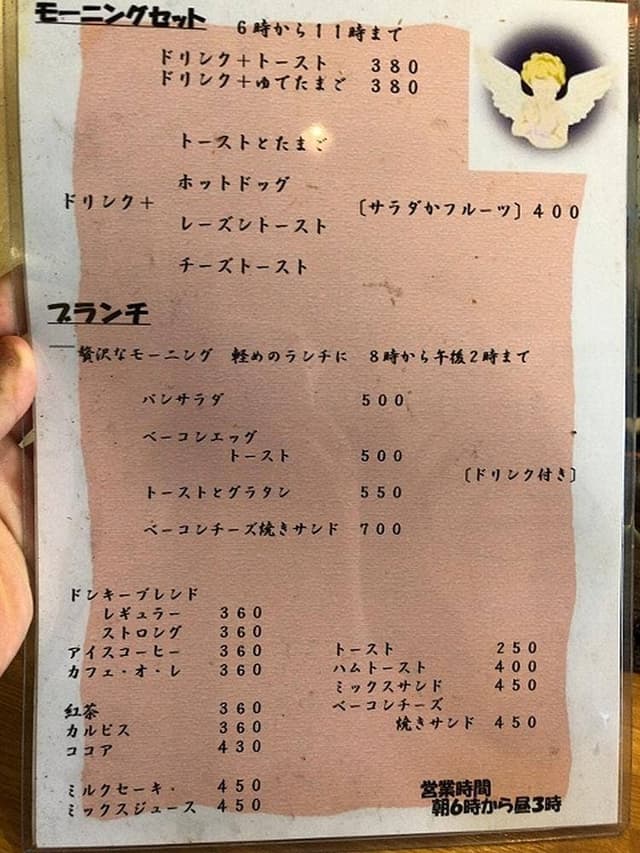 モーニングセット 6時から11時まで
ドリンク+トースト 380
ドリンク+ゆでたまご 380
トーストとたまご
ホットドッグ
ドリンク+ 〔サラダかフルーツ〕400
レーズントースト
チーズトースト
ブランチ
贅沢なモーニング 軽めのランチに 8時から午後2時まで
パンサラダ 500
ベーコンエッグ
トースト 500
〔ドリンク付き〕
トーストとグラタン 550
ベーコンチーズ焼きサンド 700
ドンキーブレンド
レギュラー 360
ストロング 360
アイスコーヒー 360
カフェ・オ・レ 360
紅茶 360
カルピス 360
ココア 430
ミルクセーキ・ 450
ミックスジュース 450
トースト 250
ハムトースト 400
ミックスサンド 450
ベーコンチーズ
焼きサンド 450
営業時間
朝6時から昼3時